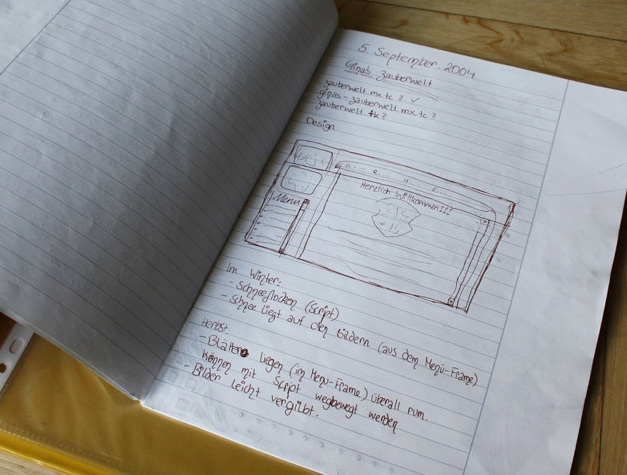 5. September. 2004
Ginas Zauberwelt
zauberwelt.mx.tc? ✓
ginas-zauberwelt.mx.tc?
zauberwelt.tk?
Design:
Herzlich Willkommen!!!
Menü
Im Winter:
- Schneeflocken (Script)
- Schnee liegt auf den Bildern (aus dem Menü-Frame)
Herbst:
- Blätter liegen (im Menü-Frame) überall rum.
können mit Script wegbewegt werden
- Bilder leicht vergilbt.